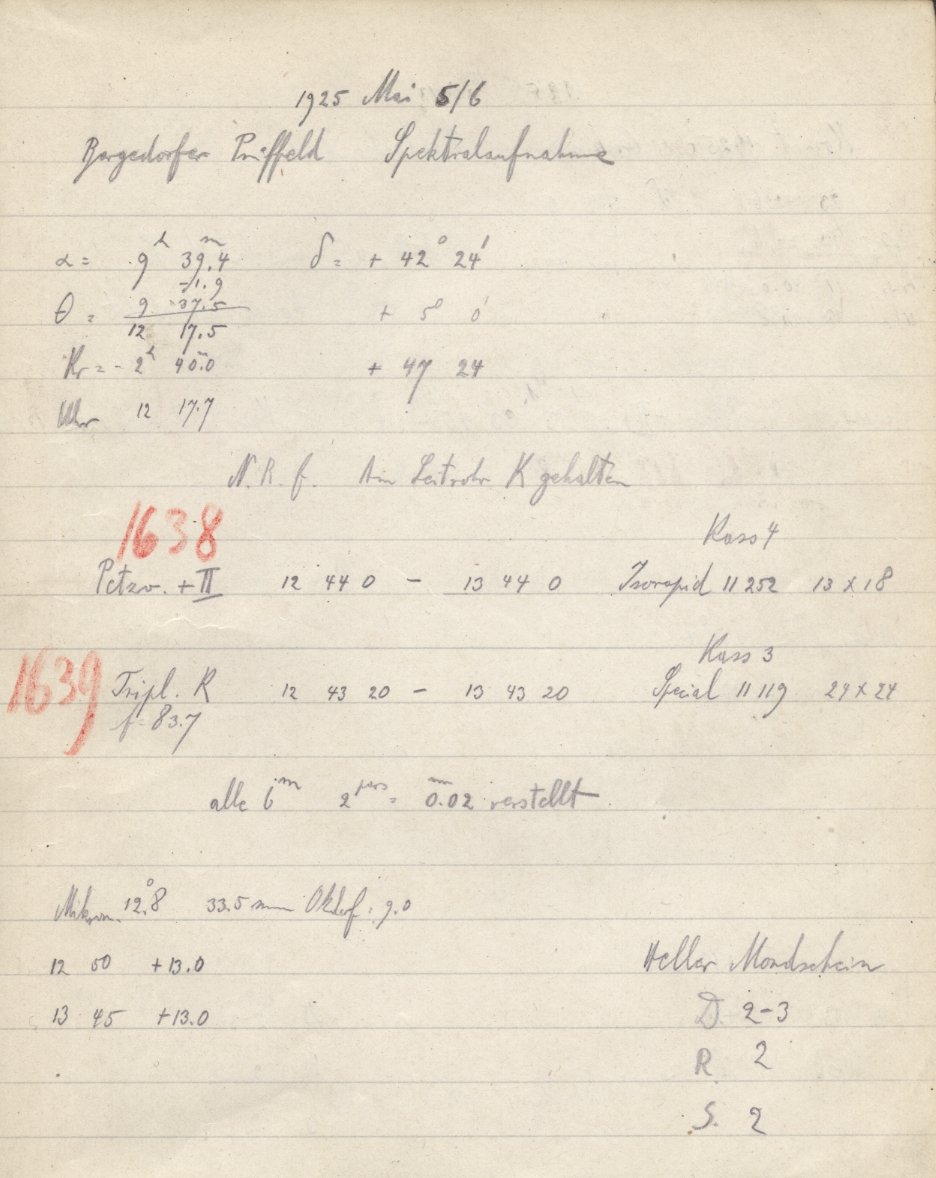 1925 Mai 5/6
Bergedorfer Prüffeld Spektralaufnahme
α = 9h 39m.4 δ = + 42° 24'
-1.9
θ = 9 37.5 + 5° 0'
12 17.5
Kr = - 2h 40m.0 + 47 24
Uhr 12 17.7
N. R. f. Am Leitrohr K gehalten
1638
Kass 4
Petzv. + II 12 44 0 - 13 44 0 Isorapid 11252 13 x 18
1639
Kass 3
Tripl. R 12 43 20 - 13 43 20 Special 11119 24 x 24
f = 83.7
alle 6m 2pars = 0mm.02 verstellt
Mikrom. 12°.8 33.5 mm Okdof. 9.0
12 50 +13.0
13 45 +13.0
Heller Mondschein
D. 2-3
R 2
S. 2